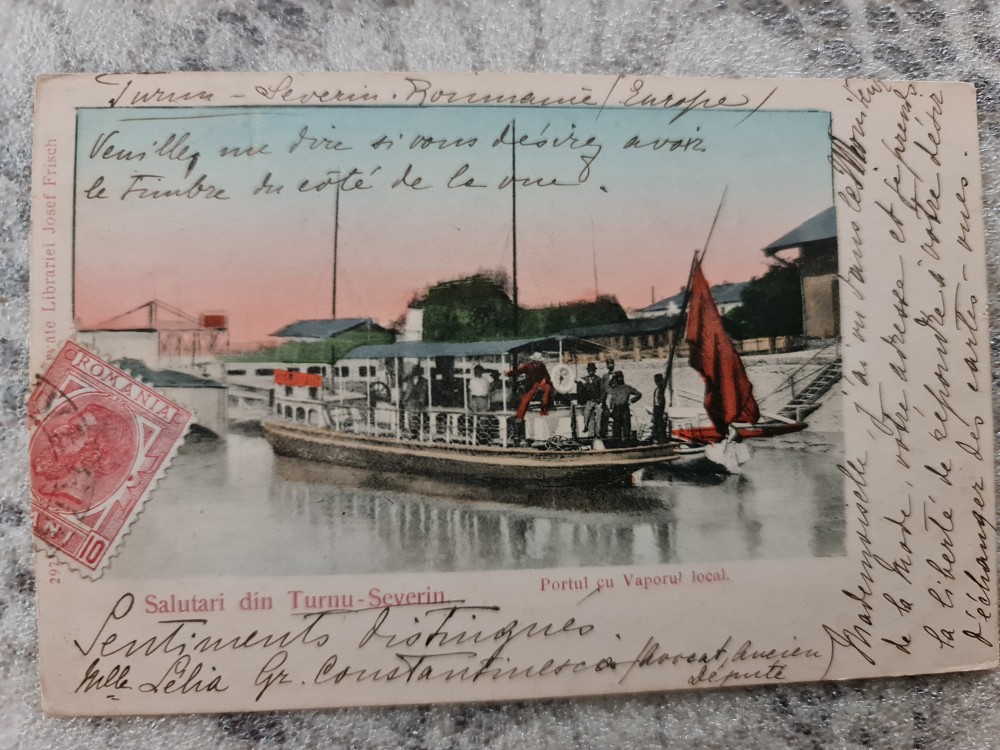 Turnu-Severin. Roumanie (Europe)
Veuillez me dire si vous désirez avoir
le timbre du côté de la vue.
Mademoiselle, J'ai vu dans les Moniteur
de la Mode, votre adresse et je prends
la liberté de répondre à votre désir
d'échanger des cartes-vues.
ate Librariei Josef Frisch
297
ROMANIA
10
BANI
Salutari din Turnu-Severin.
Portul cu Vaporul local.
Sentiments distingués.
Mlle Lélia Gr. Constantinesco (Avocat, Ancien
Député)